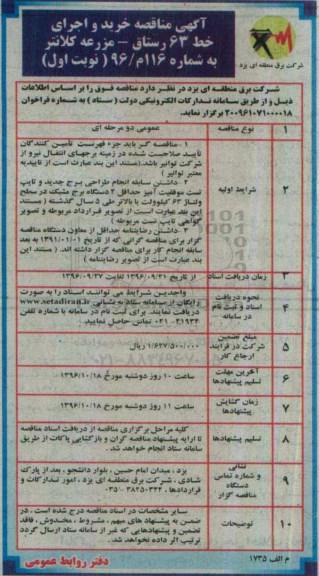 آگهی مناقصه خرید و اجرای
خط ۶۳ رستاق – مزرعه کلانتر
به شماره ۱۱۶م/۹۶ ( نوبت اول)
شرکت برق منطقه ای یزد
شرکت برق منطقه ای یزد در نظر دارد مناقصه فوق را بر اساس اطلاعات
ذیل و از طریق سامانه تدارکات الکترونیکی دولت ( ستاد ) به شماره فراخوان
۲۰۰۹۶۱۰۷۱۰۰۰۰۱۸ برگزار نماید.
۱ نوع مناقصه عمومی دو مرحله ای
۲ شرایط اولیه
۱ -مناقصه گر باید جزء فهرست تامین کنندگان
تایید صلاحیت شده در زمینه برجهای انتقال نیرو از
شرکت توانیر باشد. (مستند این بند عبارت است از تاییدیه
معتبر توانیر )
۲ -داشتن سابقه انجام طراحی برج جدید و تایپ
تست موفقیت آمیز حداقل ۲ دستگاه برج مشبک در سطح
ولتاژ ۶۳ کیلوولت یا بالاتر طی ۵ سال گذشته ( مستند
این بند عبارت است از تصویر قرارداد مربوطه و تصویر
گواهی تایپ تست مربوطه )
۳ -داشتن رضایتنامه حداقل از معاون دستگاه مناقصه
گزار برای مناقصه گرانی که از تاریخ ۱۳۹۱/۰۱/۰۱ به بعد
سابقه انجام کار برای مناقصه گزار داشته اند. ( مستند این
بند عبارت است از تصویر رضایتنامه )
۳ زمان دریافت اسناد از تاریخ ۱۳۹۶/۰۹/۲۱ لغایت ۱۳۹۶/۰۹/۲۷
۴ نحوه دریافت اسناد و ثبت نام در سامانه
واجدین شرایط می توانند اسناد را به صورت
رایگان از سامانه ستاد به نشانی www.setadiran.ir
دریافت نمایند. برای ثبت نام در سامانه با شماره تلفن
۴۱۹۳۴-۰۲۱ تماس حاصل نمایید.
۵ مبلغ تضمین شرکت در فرایند ارجاع کار ۱/۶۲۷/۵۰۰/۰۰۰ ریال
۶ آخرین مهلت تسلیم پیشنهادها ساعت ۱۰ روز دوشنبه مورخ ۱۳۹۶/۱۰/۱۸
۷ زمان گشایش پیشنهادها ساعت ۱۱ روز دوشنبه مورخ ۱۳۹۶/۱۰/۱۸
۸ تسلیم پیشنهادها
کلیه مراحل برگزاری مناقصه از دریافت اسناد مناقصه
تا ارایه پیشنهاد مناقصه گران و بازگشایی پاکات از طریق
سامانه ستاد انجام خواهد شد.
۹ نشانی و شماره تماس دستگاه مناقصه گزار
یزد ، میدان امام حسین ، بلوار دانشجو ، بعد از پارک
شادی ، شرکت برق منطقه ای یزد ، امور تدارکات و
قراردادها ، ۳۸۲۵۰۳۴۲-۰۳۵
۱۰ توضیحات
سایر مشخصات در اسناد مناقصه درج شده است . در
ضمن به پیشنهاد های مبهم ، مشروط ، مخدوش ، فاقد
تضمین و پیشنهادهایی که غیر از سامانه ستاد ارسال گردد
ترتیب اثر داده نخواهد شد.
م الف ۱۷۳۵
دفتر روابط عمومی